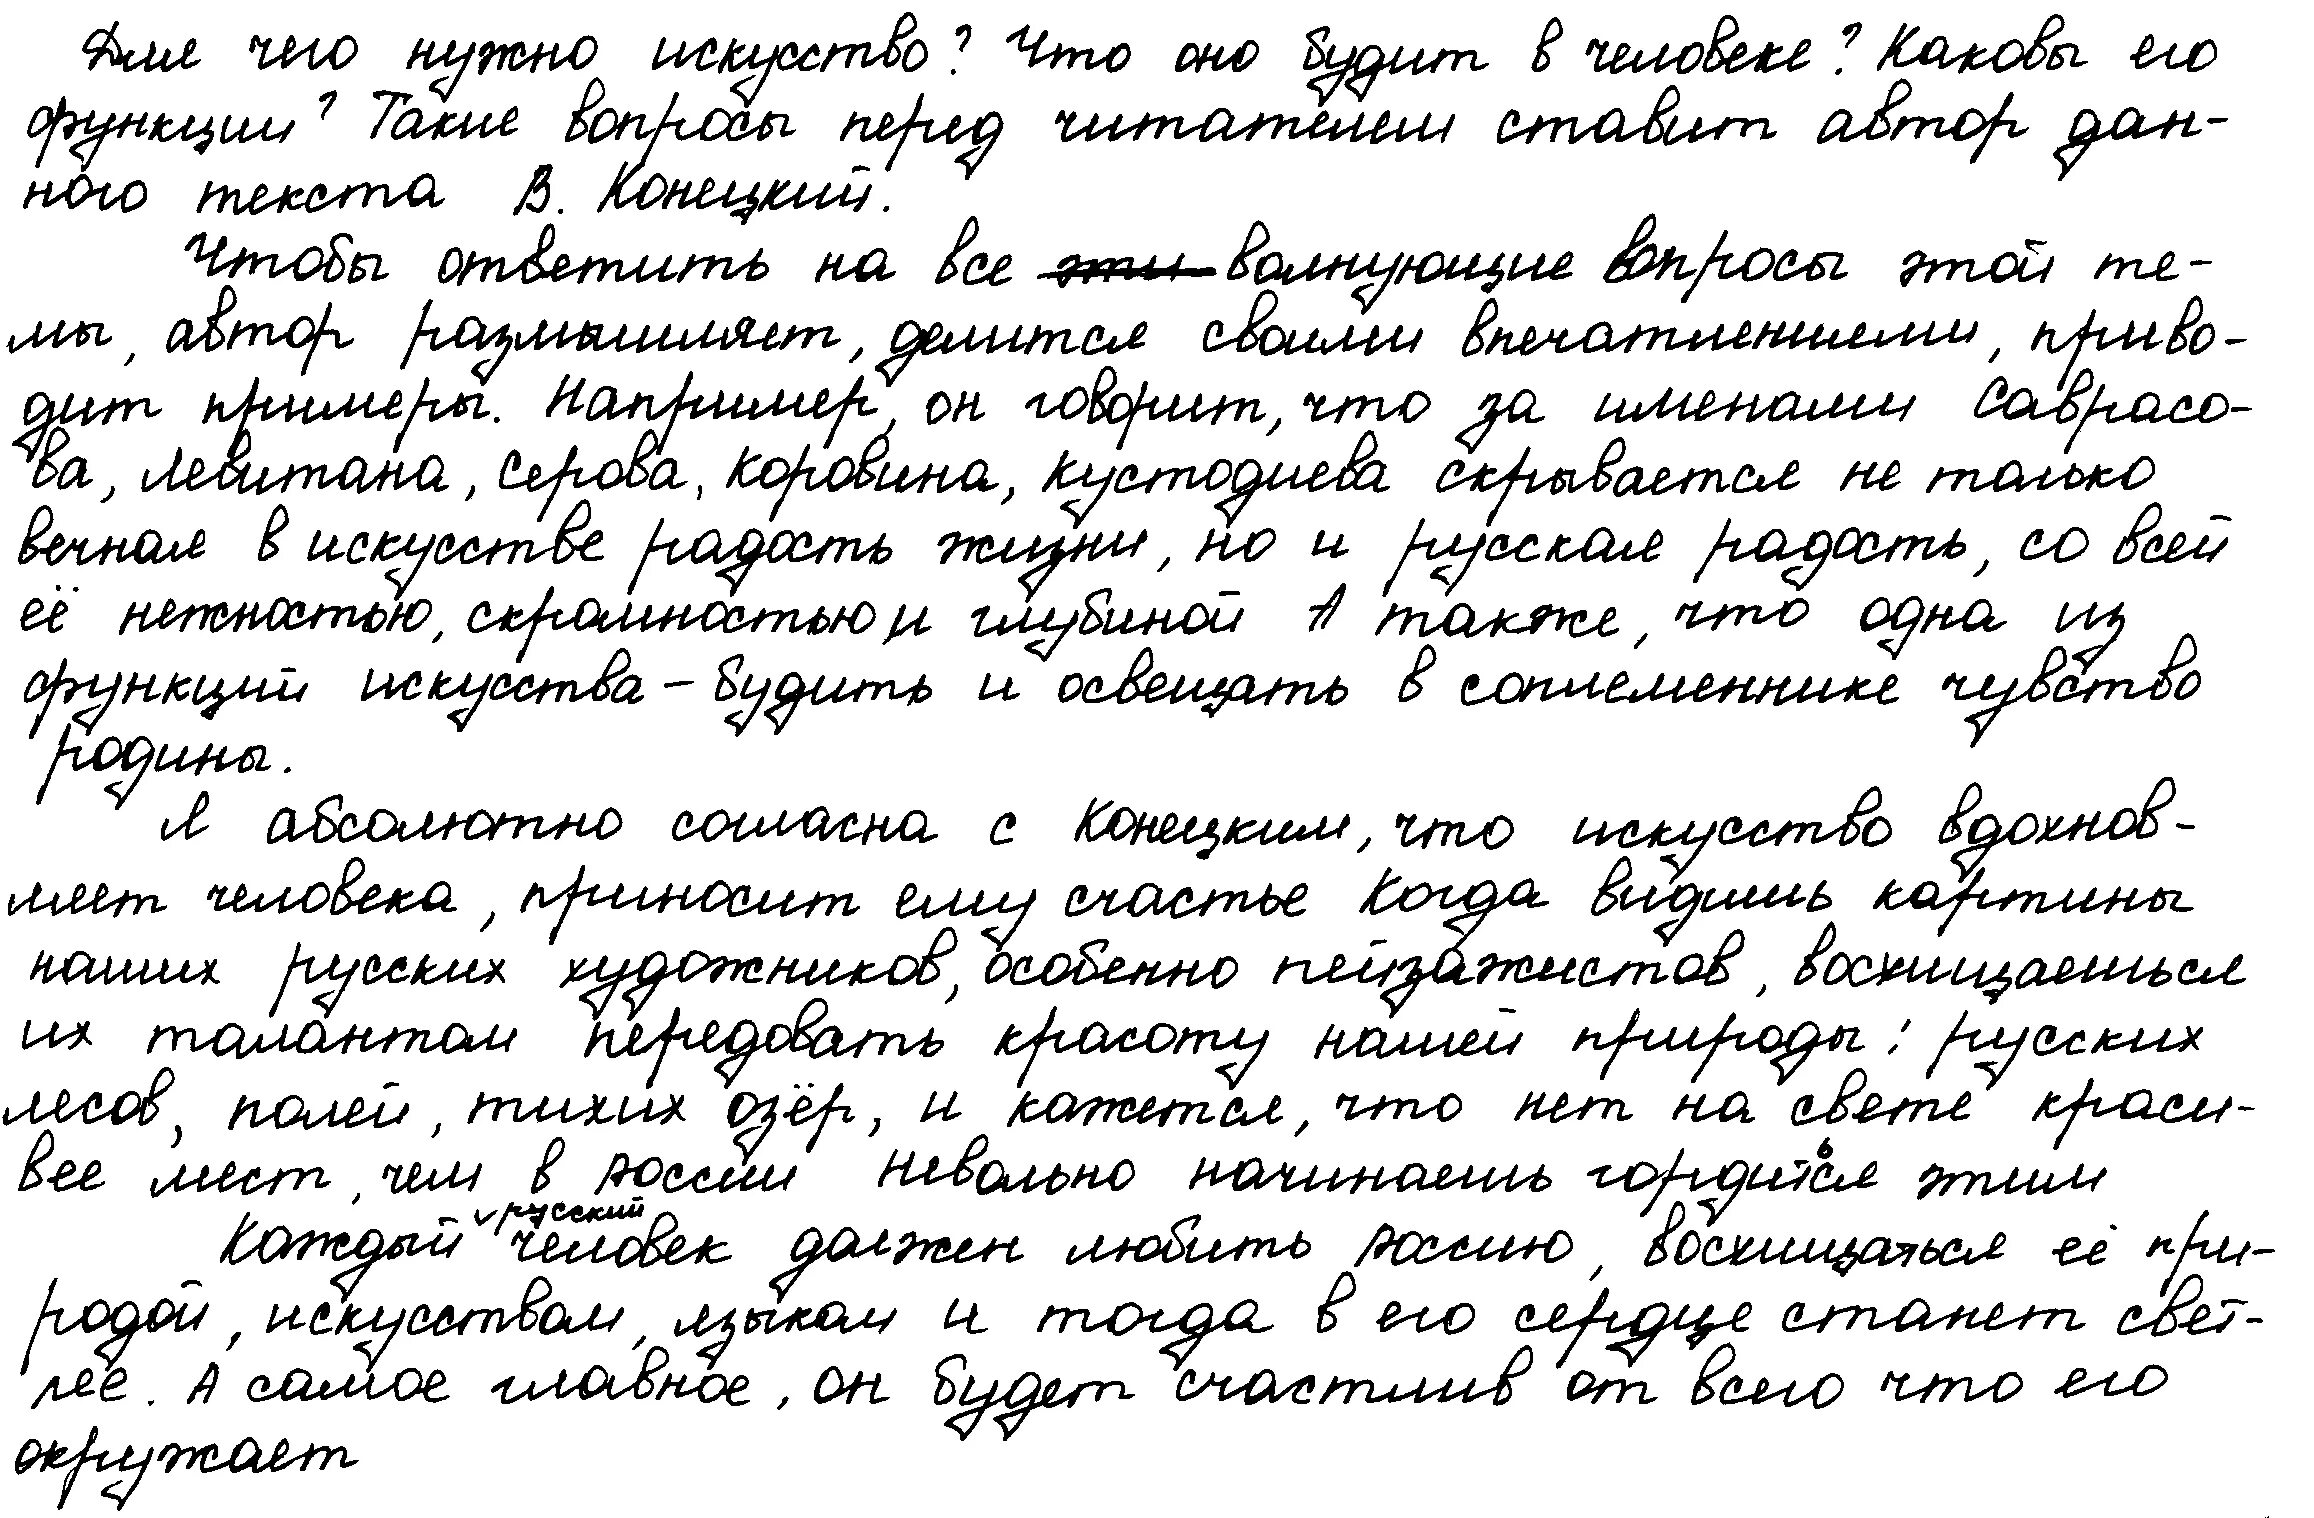 Для чего нужно искусство? Что оно будит в человеке? Каковы его
функции? Такие вопросы перед читателем ставит автор дан-
ного текста В. Конецкий.
Чтобы ответить на все эти волнующие вопросы этой те-
мы, автор размышляет, делится своими впечатлениями, приво-
дит примеры. Например, он говорит, что за именами Саврасо-
ва, Левитана, Серова, Коровина, Кустодиева скрывается не только
вечная в искусстве радость жизни, но и русская радость, со всей
её нежностью, скромностью и глубиной А также, что одна из
функций искусства – будить и освещать в соплеменнике чувство
родины.
Я абсолютно согласна с Конецким, что искусство вдохнов-
ляет человека, приносит ему счастье Когда видишь картины
наших русских художников, особенно пейзажистов, восхищаешься
их талантом передовать красоту нашей природы: русских
лесов, полей, тихих озёр, и кажется, что нет на свете краси-
вее мест, чем в России Невольно начинаешь гордиться этим
Каждый русский человек должен любить Россию, восхищаться её при-
родой, искусством, языком и тогда в его сердце станет свет-
лее. А самое главное, он будет счастлив от всего что его
окружает